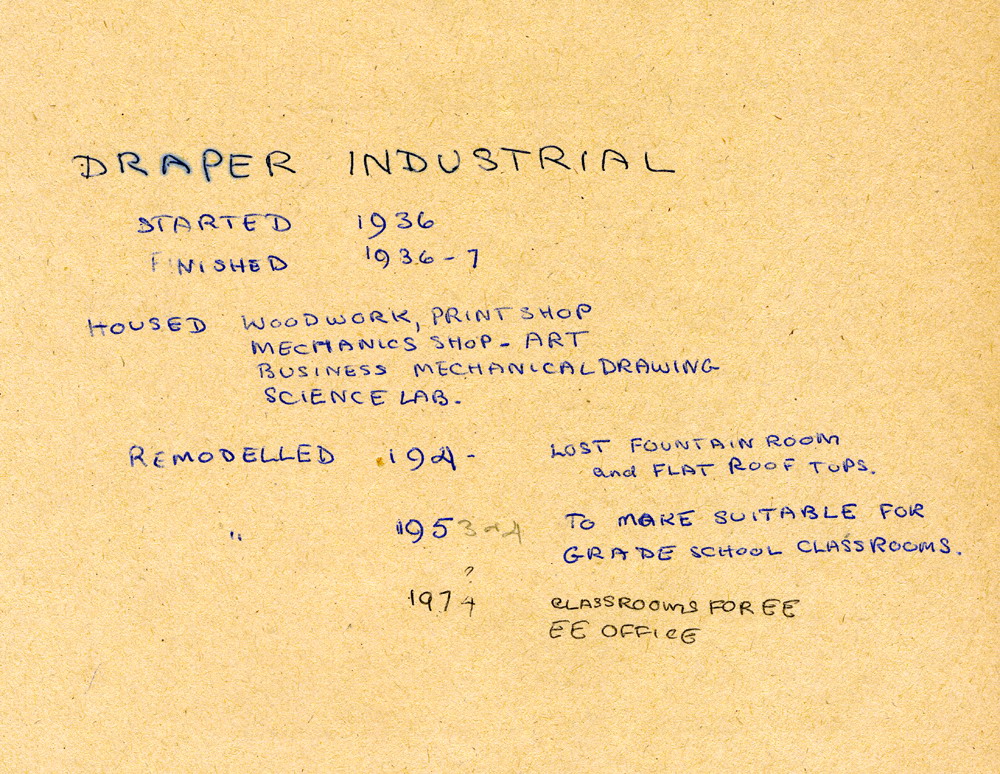 DRAPER INDUSTRIAL
STARTED 1936
FINISHED 1936-7
HOUSED WOODWORK, PRINT SHOP
MECHANICS SHOP - ART
BUSINESS MECHANICAL DRAWING
SCIENCE LAB.
REMODELLED 194- LOST FOUNTAIN ROOM
and FLAT ROOF TOPS.
" 1953 TO MAKE SUITABLE FOR
GRADE SCHOOL CLASSROOMS.
?
1974 CLASSROOMS FOR EE
EE OFFICE